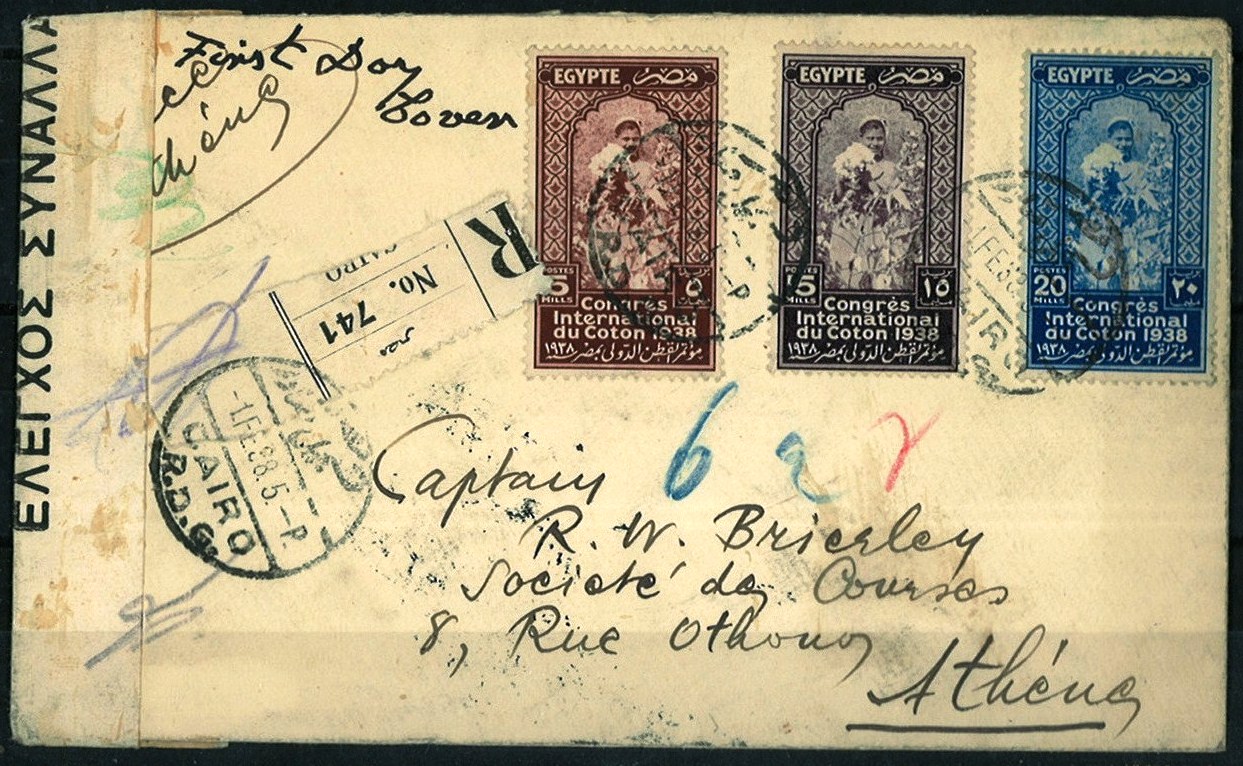 ΕΛΕΓΧΟΣ ΣΥΝΑΛΛΑ
First Day
Cover
EGYPTE مصر
POSTES
5
MILLS
٥
Congrès
International
du Coton 1938
مؤتمر القطن الدولى بمصر ١٩٣٨
EGYPTE مصر
POSTES
15
MILLS
١٥
Congrès
International
du Coton 1938
مؤتمر القطن الدولى بمصر ١٩٣٨
EGYPTE مصر
POSTES
20
MILLS
٢٠
Congrès
International
du Coton 1938
مؤتمر القطن الدولى بمصر ١٩٣٨
R
CAIRO
No. 741
مصر
-1.FE.38.5-P.
CAIRO
R.D.G.
1 FE 38
CAIRO
6
Captain
R. W. Brierley
Societé des Courses
8, Rue Othonos
Athénes